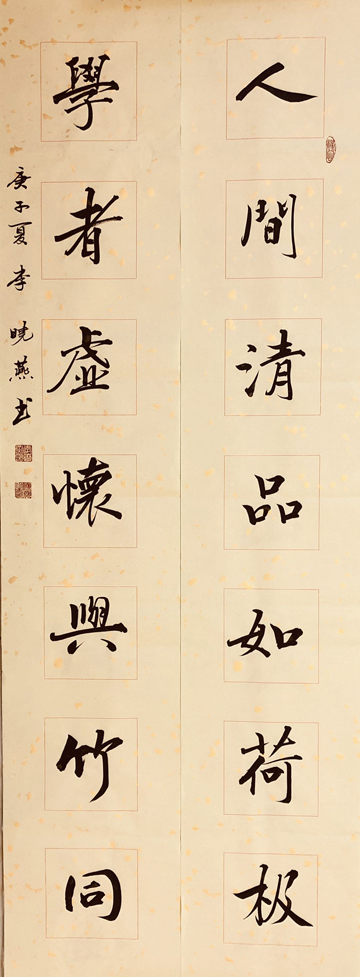 人間清品如荷极
學者虛懷與竹同
庚子夏 李晓燕书